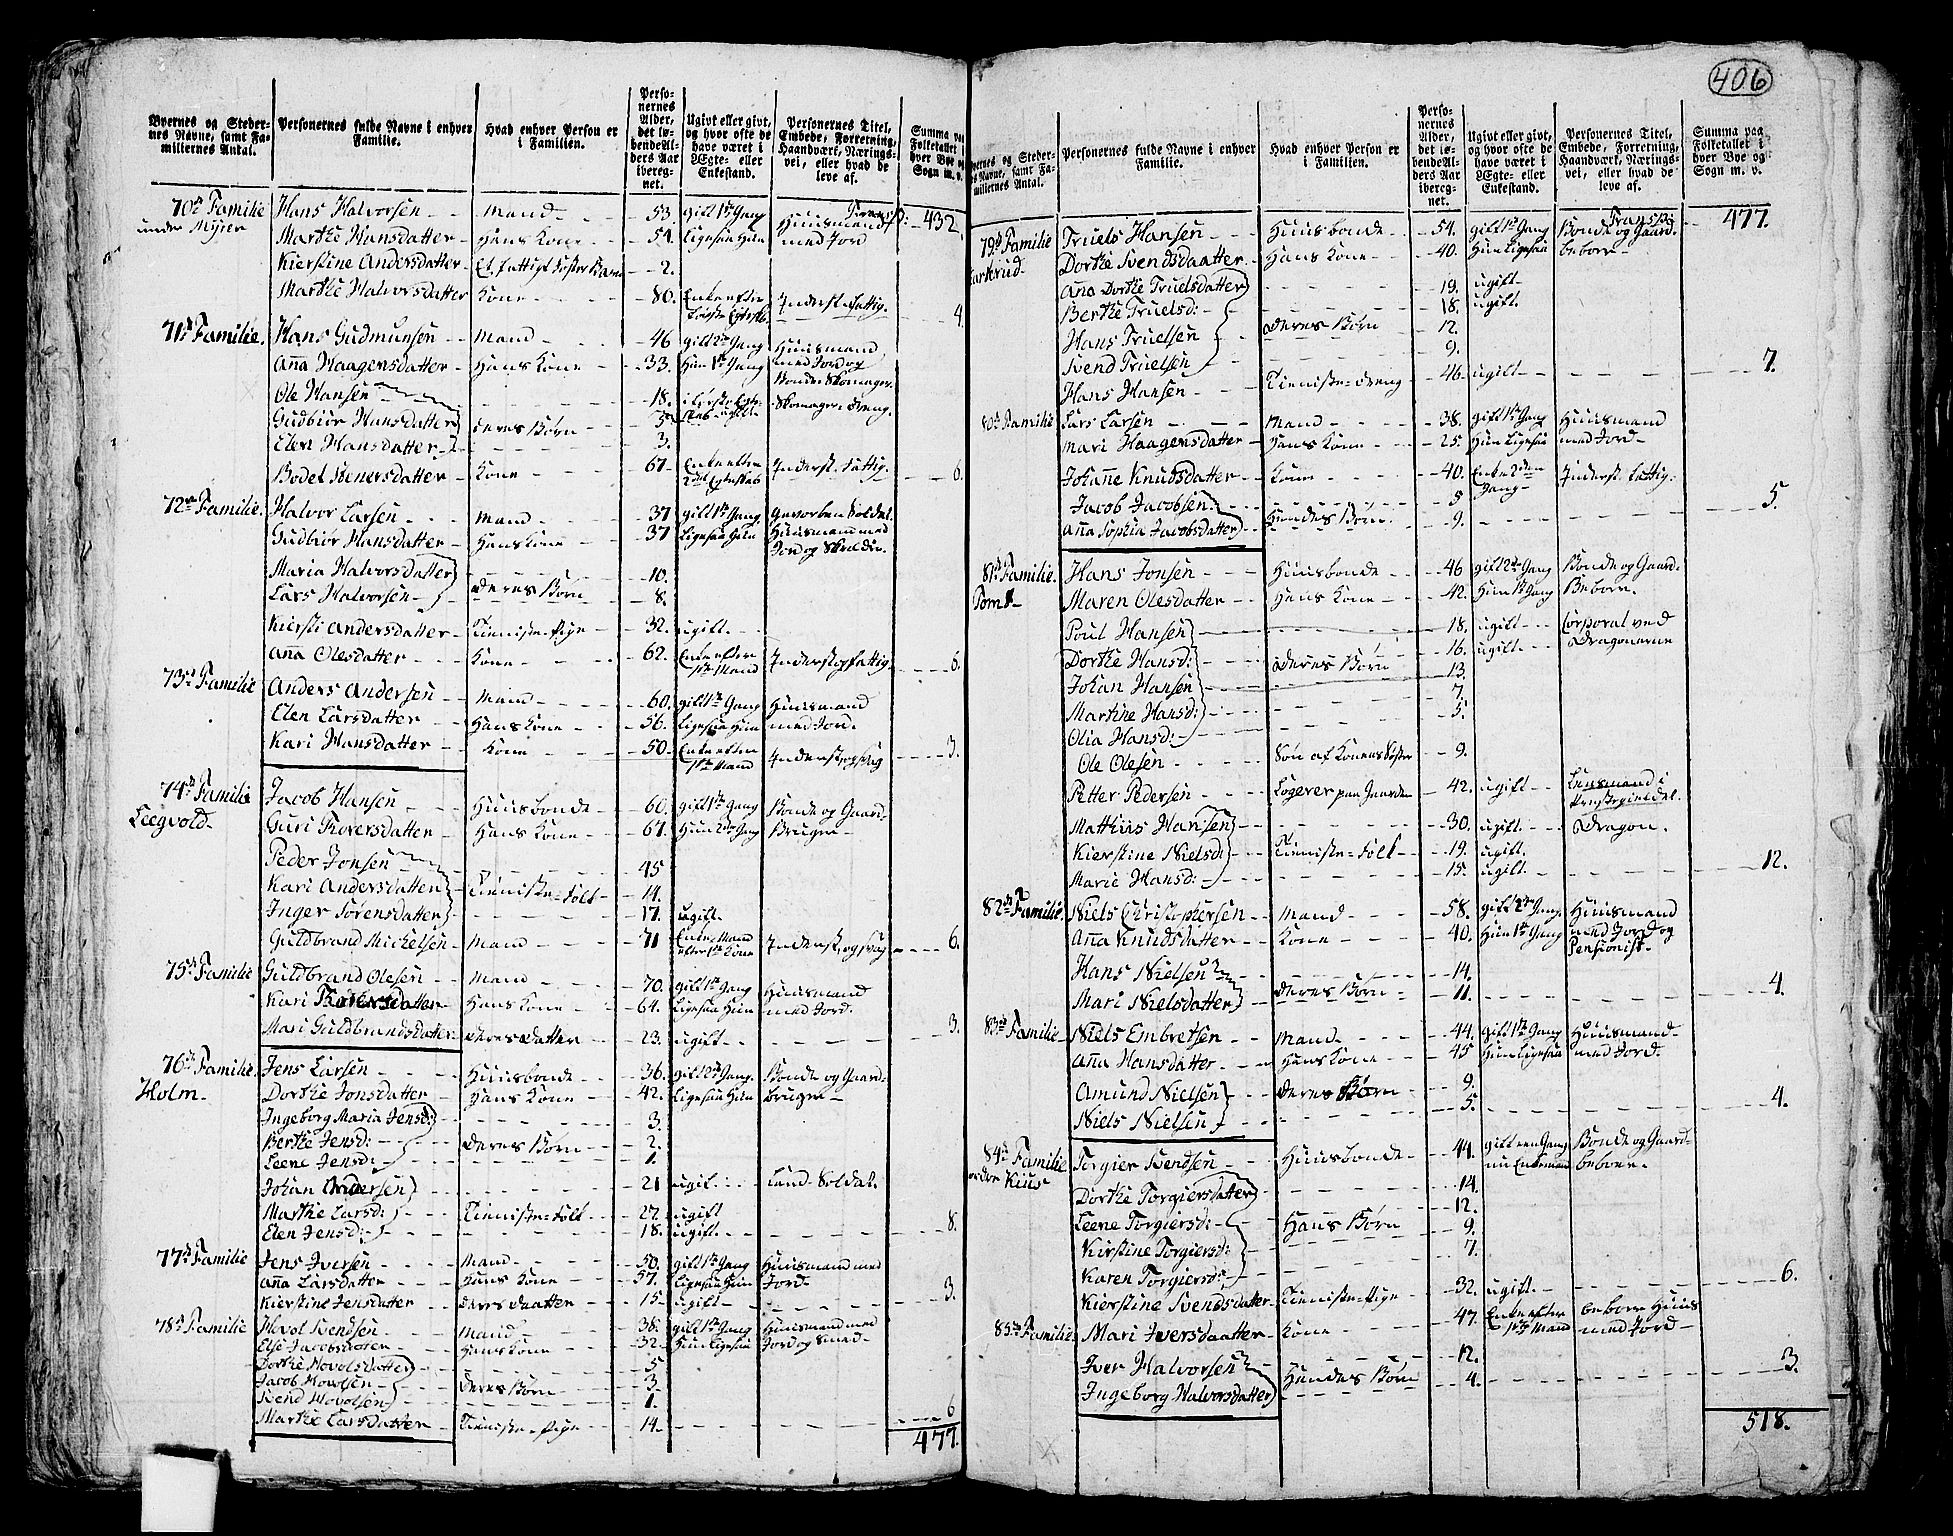 406
Byernes og Stedernes Navne, samt Familiernes Antal.
Personernes fulde Navne i enhver Familie.
Hvad enhver Person er i Familien.
Personernes Alder, det løbende Alders Aar iberegnet.
Ugivt eller givt, og hvor ofte de have været i Ægte- eller Enkestand.
Personernes Titel, Embede, Forretning, Haandværk, Næringsvei, eller hvad de leve af.
Summa paa Folketallet i hver Bye og Sogn m. v.
Transp: 432.
70de Familie Hans Halvorsen Mand 53 gift 1ste Gang Huusmand
under Myier Marthe Hansdatter Hans Kone 54. Ligesaa Hun med Jord
Kierstine Andersdatter Et fattigt Foster Barn 2.
Marthe Halvorsdatter Kone 86. Enke efter første Egteskb. Inderst. fattig. 4.
71de Familie. Hans Gudmunsen Mand 46 gift 2den Gang Huusmand
Anna Haagensdatter Hans Kone 33. Hun 1ste Gang med Jord og Bonde Skomager.
Ole Hansen 18. ugift Skomager dreng.
Gudbiør Hansdatter Deres Børn 5
Elen Hansdatter 3.
Bodel Reiersdatter Kone 67 Enke efter 2det Egteskab Inderst. fattig. 6.
72de Familie. Halvor Larsen Mand 37 gift 1ste Gang Gevorben Soldat
Gudbiør Hansdatter Hans Kone 37 Ligesaa Hun Huusmand med Jord og Skredder.
Maria Halvorsdatter 10.
Lars Halvorsen Deres Børn 8.
Kiersti Andersdatter Tieniste-Pige 32. ugift
Anna Olesdatter Kone 62. Enke efter 1ste Mand Inderst og fattig 6.
73de Familie Anders Andersen Mand 60. gift 1ste Gang Huusmand
Elen Larsdatter Hans Kone 56. Ligesaa Hun med Jord.
Kari Hansdatter Kone 50. Enke efter 1ste Mand Inderst og svag 3.
74de Familie Jacob Hansen Huusbonde 60. gift 1ste Gang Bonde og Gaard
Leegvold Guri Toversdatter Hans Kone 67. Hun 2den Gang Bruger
Peder Jonsen 45
Kari Andersdatter Tieniste-Folk 14.
Inger Sørensdatter 17. ugift
Guldbrand Michelsen Mand 71 Enke-Mand efter 1ste Kone Inderst. og svag 6.
75de Familie Guldbrand Olesen Mand 70. gift 1ste Gang Huusmand
Kari Toversdatter Hans Kone 64. Ligesaa Hun med Jord.
Mari Guldbrandsdatter Deres Datter 23. ugift 3.
76de Familie. Jens Larsen Huusbonde 36. gift 2den Gang. Bonde og Gaard-
Holm Dorthe Jonsdatter Hans Kone 42. Ligesaa Hun bruger
Ingeborg Maria Jensd: 3.
Berthe Jensd: Deres Børn 2.
Leene Jensd: 1.
Johan Andersen 21 ugift Land-Soldat.
Marthe Larsd: Tieniste-Folk 22. ugift
Elen Jensd: 18. ugift. 8.
77de Familie Jens Iversen Mand 50. gift 1ste Gang Huusmand med
Anna Larsdatter Hans Kone 57. Ligesaa Hun Jord.
Kierstine Jensdatter Deres Daatter 15. ugift 3.
78de Familie Hovol Svendsen Mand 38. gift 1ste Gang Huusmand med
Else Jacobsdotter Hans Kone 32. Hun Ligesaa Jord og Smed
Dorthe Hovolsdatter 5
Jacob Hovolsen Deres Børn 3.
Svend Hovolsen 1.
Marthe Larsdatter Tieniste-Pige 14. 6
477.
Byernes og Stedernes Navne, samt Familiernes Antal.
Personernes fulde Navne i enhver Familie.
Hvad enhver Person er i Familien.
Personernes Alder, det løbende Alders Aar iberegnet.
Ugivt eller givt, og hvor ofte de have været i Ægte- eller Enkestand.
Personernes Titel, Embede, Forretning, Haandværk, Næringsvei, eller hvad de leve af.
Summa paa Folketallet i hver Bye og Sogn m. v.
Transp: 477.
79de Familie Truels Hansen Huusbonde 54. gift 1ste Gang Bonde og Gaard
Dorthe Svendsdaatter Hans Kone 40. Hun Ligesaa beboer
Ana Dorthe Truelsdatter 19. ugift
Berthe Truelsd: 18. ugift.
Hans Truelsen Deres Børn 12.
Svend Truelsen 9.
Hans Hansen Tieniste-Dreng 46. ugift 7.
80de Familie Lars Larsen Mand 38. gift 1ste Gang Huusmand
Mari Haagensdatter Hans Kone 25. Hun Ligesaa med Jord
Johanne Knudsdatter Kone 40. Enke 2den Gang Inderst. fattig.
Jacob Jacobsen 5
Anna Sophia Jacobsdatter Hendes Børn 9. 5.
81de Familie. Hans Jonsen Huusbonde 46 gift 2den Gang Bonde og Gaard
Maren Olesdatter Hans Kone 42. Hun 1ste Gang Beboer.
Poul Hansen 18. ugift Corporal ved Dragonerne
Dorthe Hansd: 16. ugift
Johan Hansen Deres Børn 13.
Martine Hansd: 7.
Olia Hansd: 5.
Ole Olesen Søn af Konens Søster 9.
Petter Pedersen Logerer paa Gaarden 42. ugift Lensmand i Prestegieldet.
Mathius Hansen 30. ugift Dragon.
Kierstine Nielsd: Tieniste-Folk 19. ugift.
Marie Hansd: 15. ugift 12.
82de Familie. Niels Christophersen Mand 58. gift 2den Gang Huusmand
Anna Knudsdatter Kone 40. Hun 1ste Gang med Jord og Pensionist
Hans Nielsen 14.
Mari Nielsdatter Deres Børn 11. 4.
83de Familie Niels Embretsen Mand 44. gift 1ste Gang Huusmand
Anna Hansdatter Hans Kone 45 Hun Ligesaa med Jord.
Amund Nielsen Deres Børn 9.
Niels Nielsen 5. 4.
84de Familie Torgier Svendsen Huusbonde 44. gift een Gang nu Enkemand Bonde og Gaard-beboer
Dorthe Torgiersdatter 14.
Leene Torgiersd: 12.
Kirstine Torgiersd: Hans Børn 9.
Karen Torgiersd: 7.
Kierstine Svendsdatter Tieniste-Pige 32. ugift 6.
85de Familie. Mari Iversdaatter Kone 47. Enke efter 1ste Mand beboer Huus med Jord
Iver Halvorsen 12.
Ingeborg Halvorsdatter Hendes Børn 4. 3.
518.